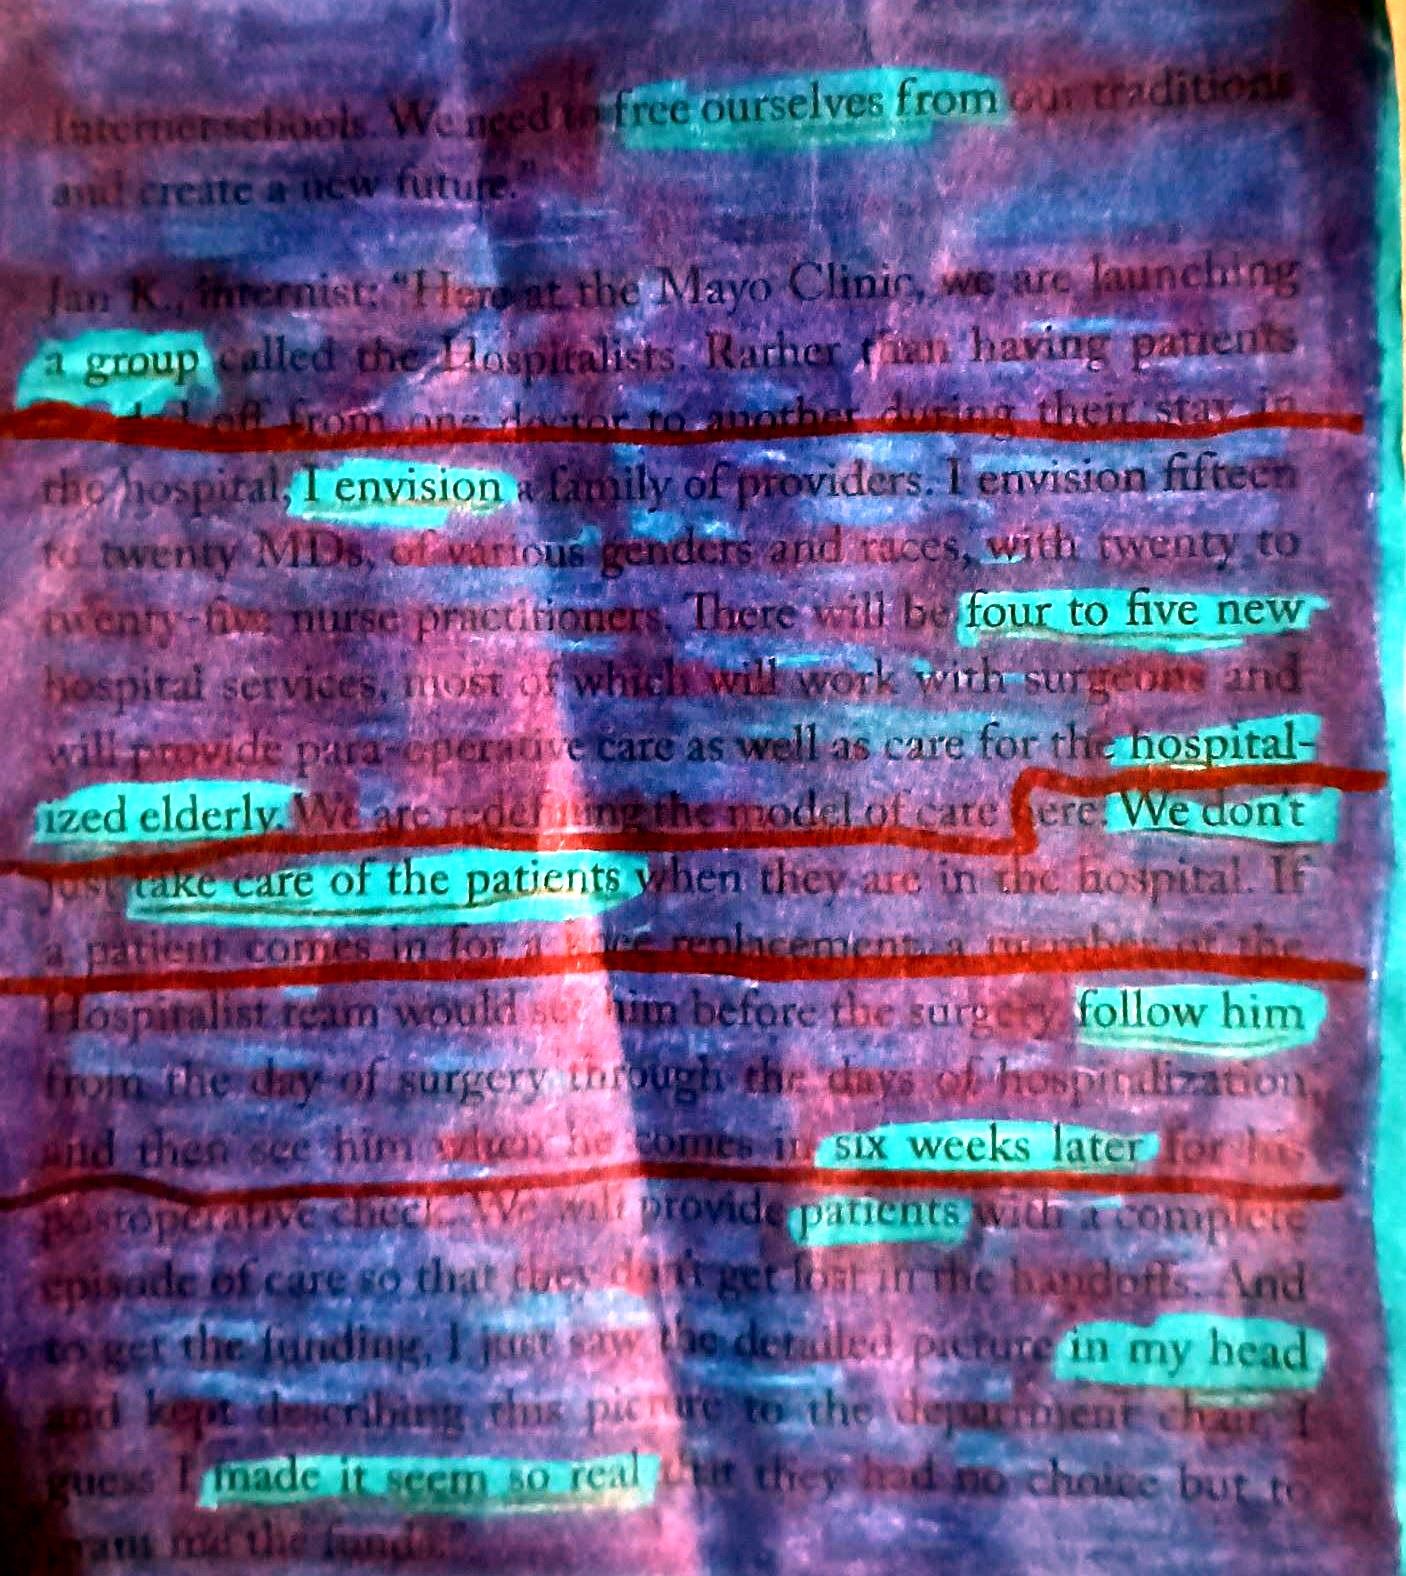 Internet schools. We need to free ourselves from our traditions
and create a new future."
Jan K., internist: "Here at the Mayo Clinic, we are launching
a group called the Hospitalists. Rather than having patients
off from one doctor to another during their stay in
the hospital, I envision a family of providers. I envision fifteen
to twenty MDs, of various genders and races, with twenty to
twenty-five nurse practitioners. There will be four to five new
hospital services, most of which will work with surgeons and
will provide para-operative care as well as care for the hospital-
ized elderly. We are redefining the model of care here. We don't
just take care of the patients when they are in the hospital. If
a patient comes in for a knee replacement, a member of the
Hospitalist team would see him before the surgery, follow him
from the day of surgery through the days of hospitalization,
and then see him when he comes in six weeks later for his
postoperative check. We will provide patients with a complete
episode of care so that they don't get lost in the handoffs. And
to get the funding, I just saw the detailed picture in my head
and kept describing this picture to the department chair. I
guess I made it seem so real that they had no choice but to
grant me the funds."